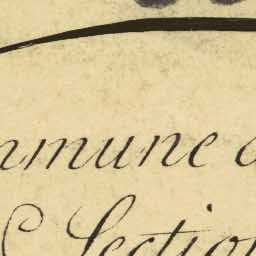 mmune d
C Section